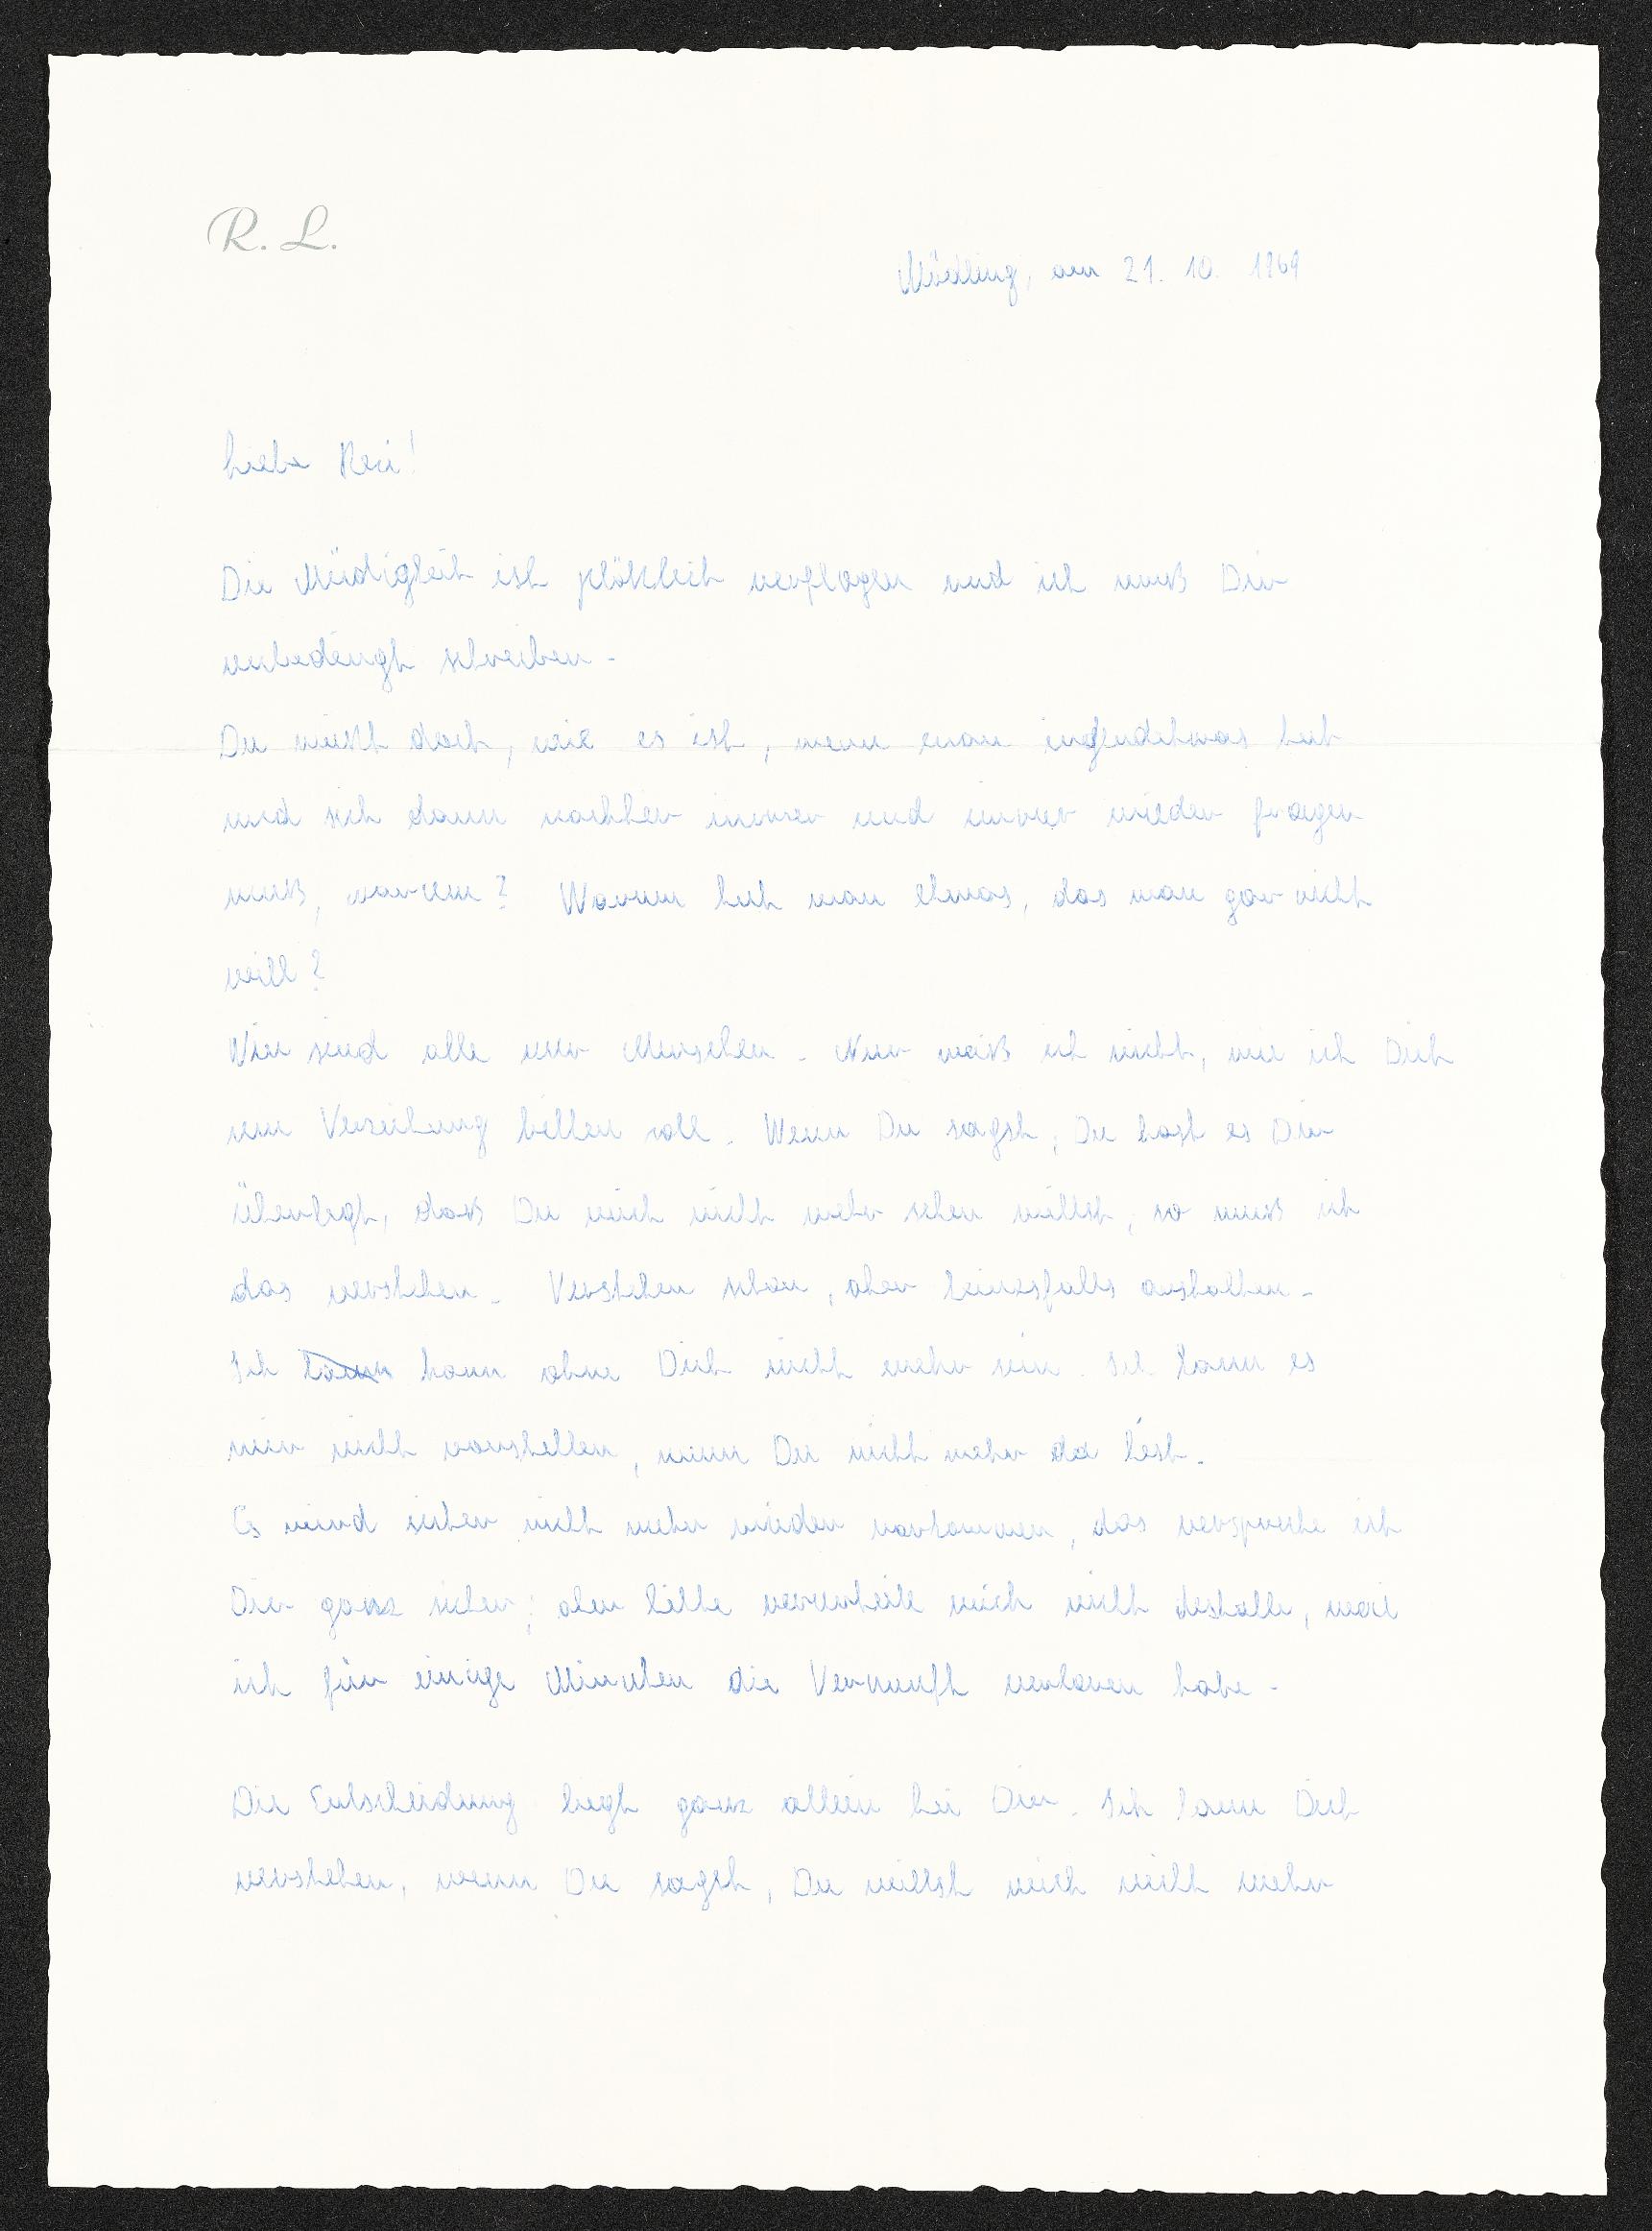 R. L.
Mödling, am 21. 10. 1969
Liebe Resi!
Die Müdigkeit ist plötzlich verflogen und ich muß Dir
unbedingt schreiben.
Du weißt doch, wie es ist, wenn man irgendetwas tut
und sich dann nachher immer und immer wieder fragen
muß, warum? Warum tut man etwas, das man gar nicht
will?
Wir sind alle nur Menschen. Nur weiß ich nicht, wie ich Dich
um Verzeihung bitten soll. Wenn Du sagst, Du hast es Dir
überlegt, daß Du mich nicht mehr sehen willst, so muß ich
das verstehen. Verstehen schon, aber keinesfalls aushalten.
Ich kann kann ohne Dich nicht mehr sein. Ich kann es
mir nicht vorstellen, wenn Du nicht mehr da bist.
Es wird sicher nicht mehr wieder vorkommen, das verspreche ich
Dir ganz sicher; aber bitte verurteile mich nicht deshalb, weil
ich für einige Minuten die Vernunft verloren habe.
Die Entscheidung liegt ganz allein bei Dir. Ich kann Dich
verstehen, wenn Du sagst, Du willst mich nicht mehr